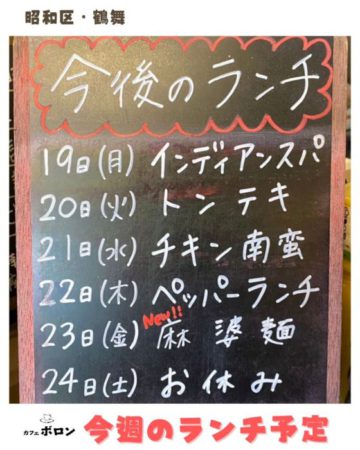 昭和区・鶴舞
今後のランチ
19日(月) インディアンスパ
20日(火) トンテキ
21日(水) チキン南蛮
22日(木) ペッパーランチ
New!!
23日(金) 麻婆麺
24日(土) お休み
カフェ ボロン
今週のランチ予定